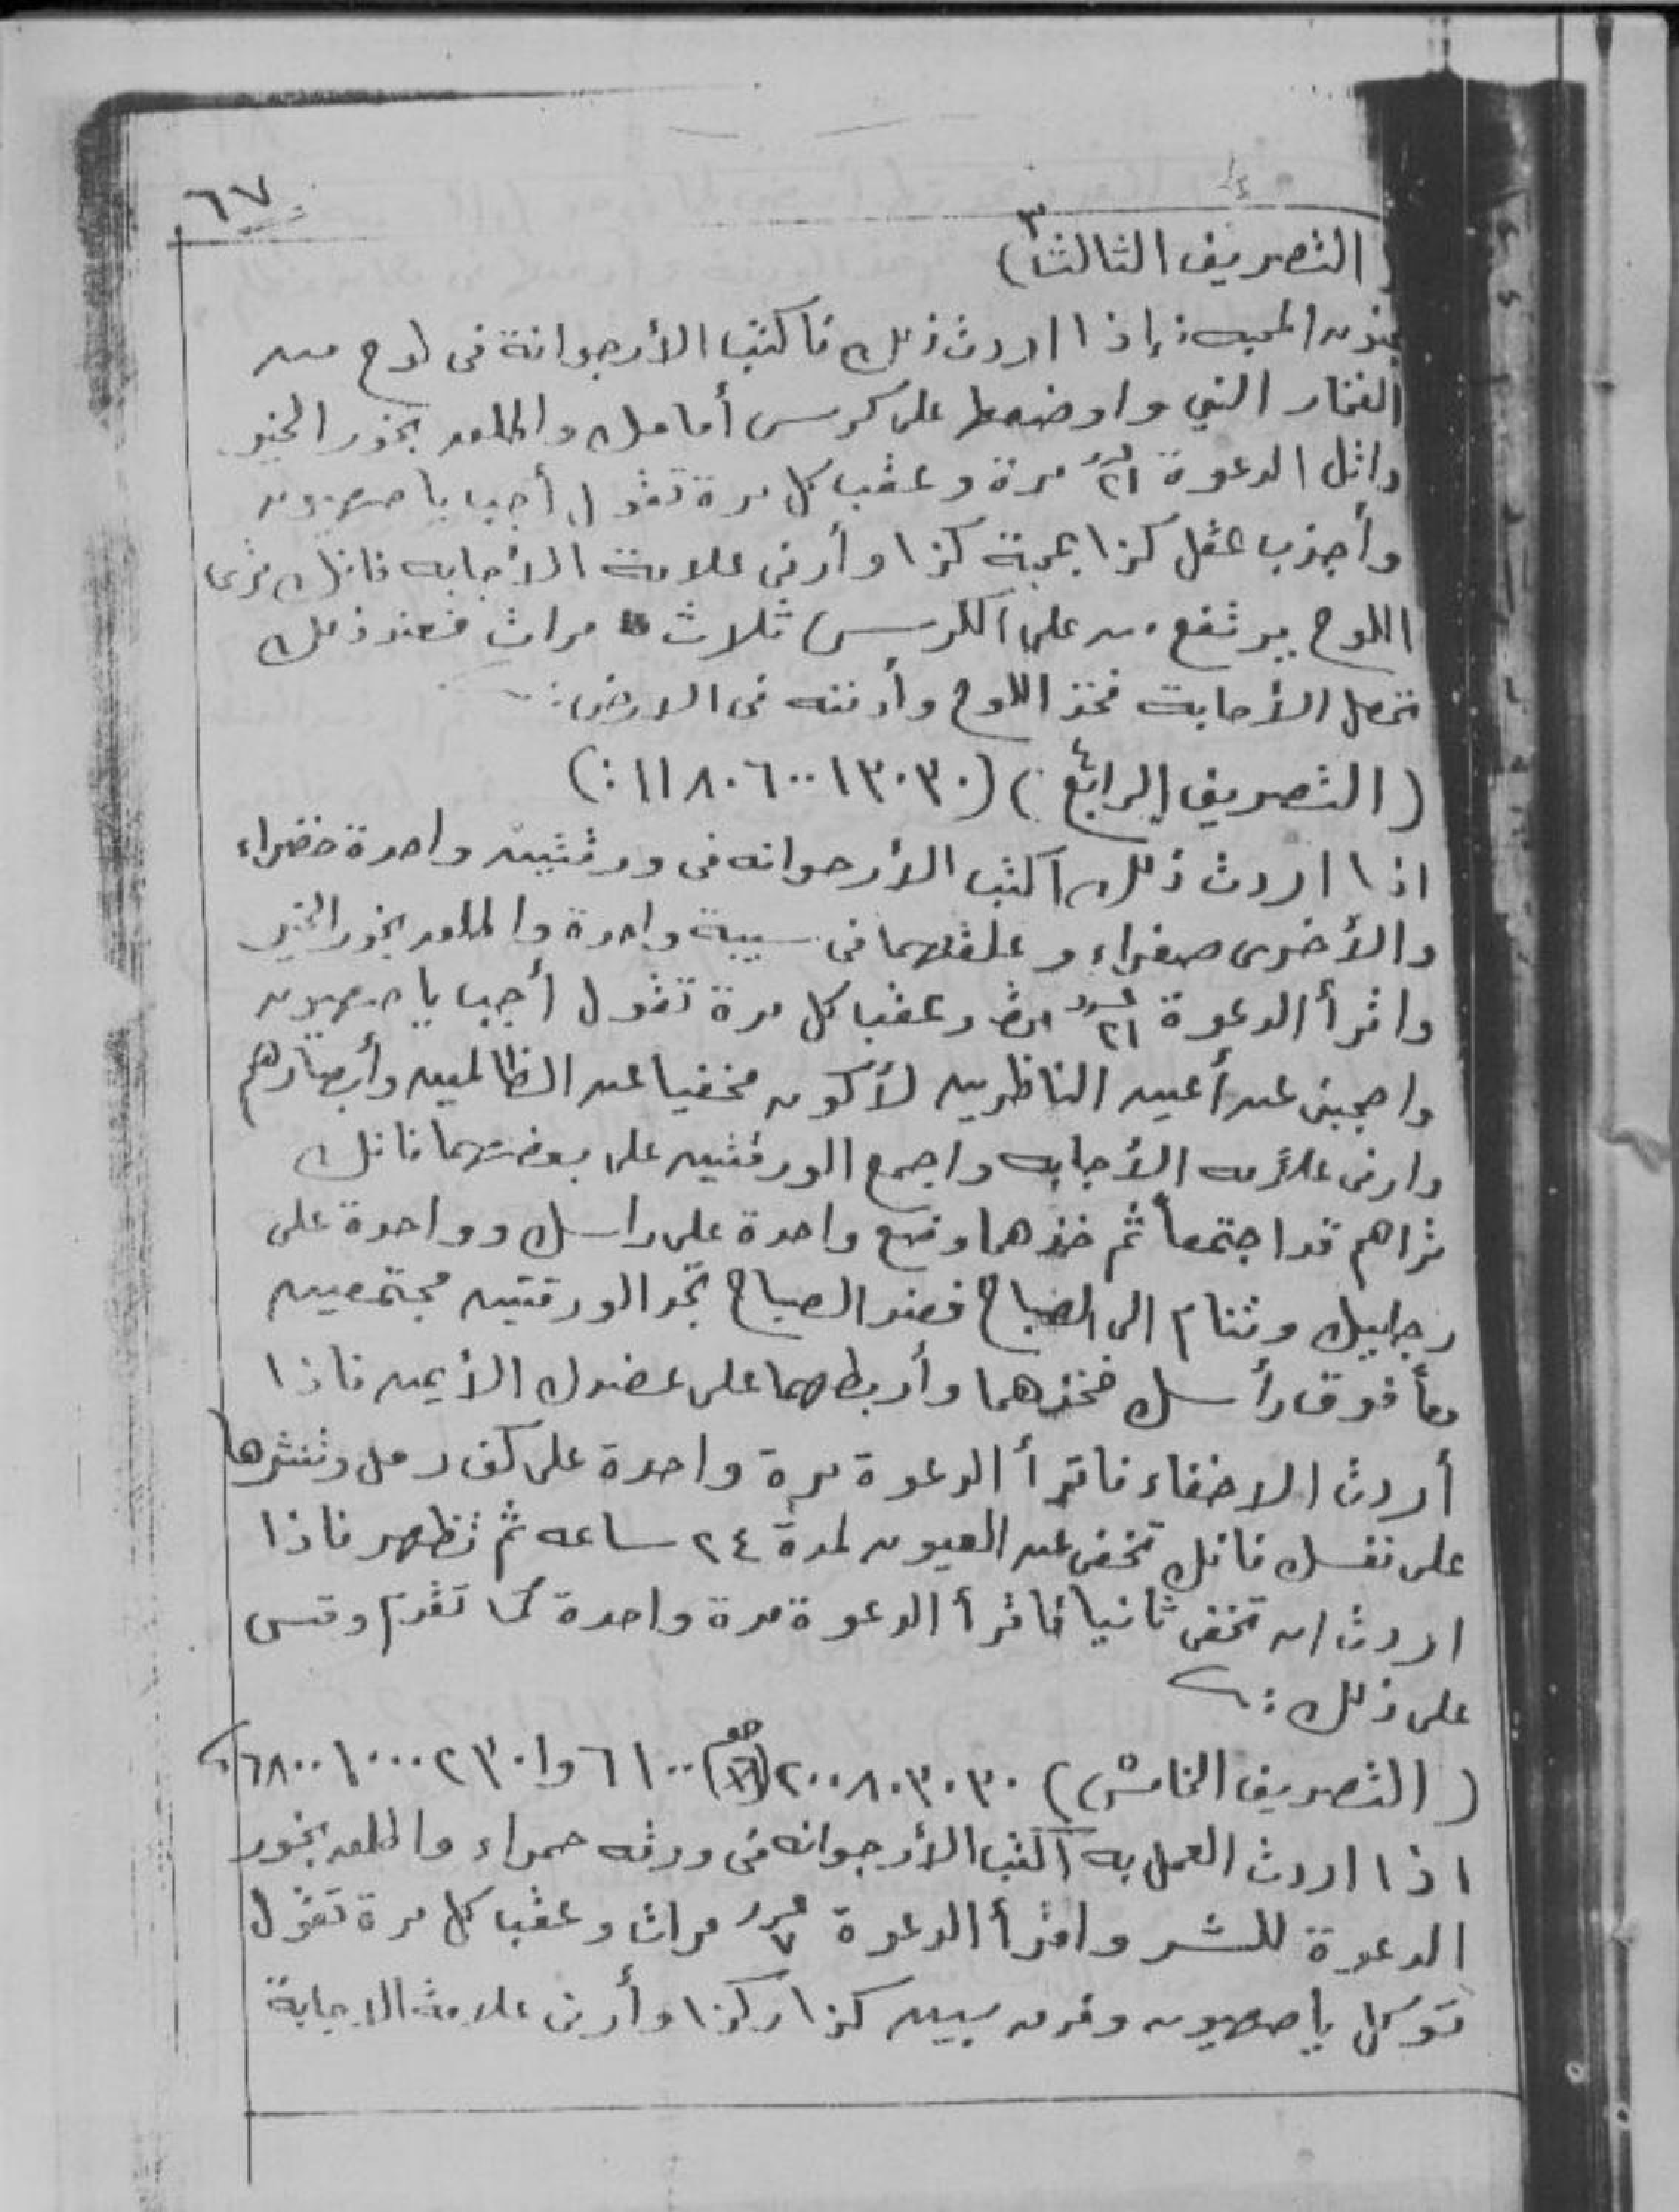 ٦٧
(التصريف الثالث ٣)
المحبه : إذا اردت ذلك فاكتب الأرجوانة فى لوح من
الفخار الني واوضعها على كرسى أمامك واطلق بخور الخير
واتل الدعوة عدد ٢١ مرة وعقب كل مرة تقول أجب يا صهيون
وأجذب عقل كذا بمحبة كذا وأرنى علامة الأجابه فانك ترى
اللوح يرتفع من على الكرسى ثلاث مرات فعند ذلك
تحصل الأجابة فخذ اللوح وأدفنه فى الارض :
(التصريف الرابع ٤) (١١٨٠٦٠٠١٣٠٣٠ :)
اذا اردت ذلك اكتب الأرجوانه فى ورقتين واحدة خضراء
والأخرى صفراء وعلقهما فى سيبة واحدة واطلق بخور الخير
واقرأ الدعوة عدد ٢١ مرة وعقب كل مرة تقول أجب يا صهيون
واحجبنى عن أعين الناظرين لأكون مخفيا عن الظالمين وأبصارهم
وارنى علامه الأجابه واجمع الورقتين على بعضهما فانك
تراهم قد اجتمعاً ثم خذهما وضع واحدة على راسك وواحدة على
رجليك وتنام الى الصباح فعند الصباح تجد الورقتين مجتمعين
معاً فوق رأسك فخذهما وأربطهما على عضدك الأيمن فاذا
أردت الاخفاء فاقرأ الدعوة مرة واحدة على كف رمل وتنثرها
على نفسك فانك تخفى عن العيون لمدة ٢٤ ساعه ثم تظهر فاذا
اردت ان تخفى ثانيا فاقرأ الدعوة مرة واحدة كما تقدم وقس
على ذلك :
(التصريف الخامس) ٢٠٠٨٠٣٠٣٠ ٦١٠٠ وا ٢٣٠١٠٠٠ ٦٨٠٠
اذا اردت العمل به اكتب الأرجوانه فى ورقه حمراء واطلق بخور
الدعوة للشر واقرأ الدعوة عدد ٧ مرات وعقب كل مرة تقول
توكل يا صهيون وفرق بين كذا وكذا وأرنى علامة الاجابة